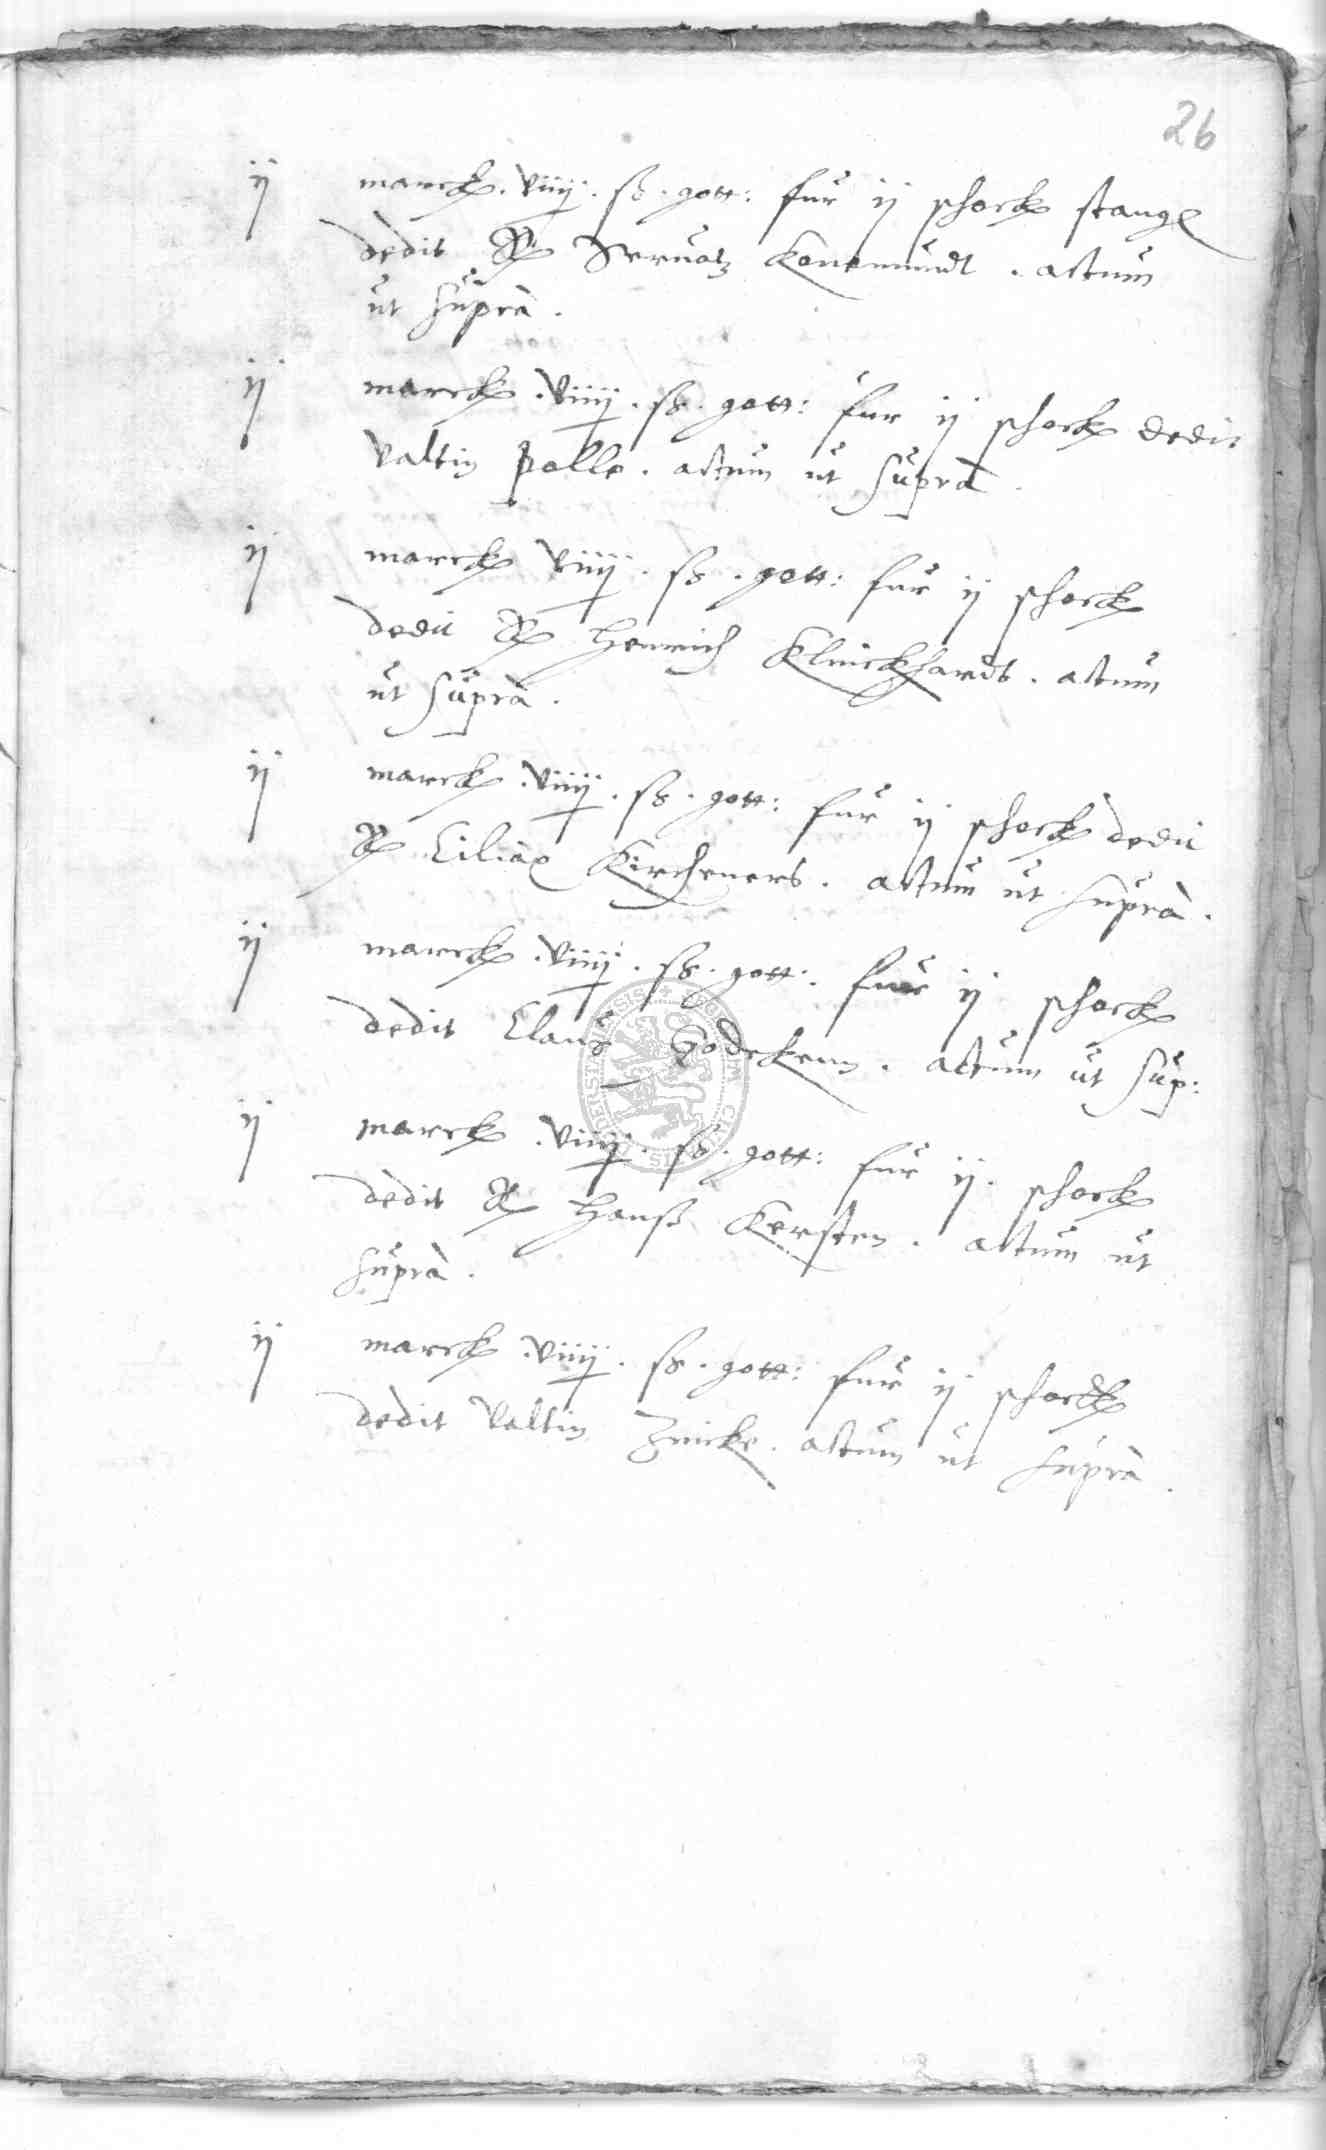 26
ij marck . viiij . ß . gott: fur ij schock stang
dedit Servatz Konemundt . actum
ut supra .
ij marck . viiij . ß . gott: fur ij schock dedit
Valtin Polle . actum ut supra .
ij marck viiij . ß . gott: fur ij schock
dedit Henrich Klinckhardt . actum
ut supra .
ij marck . viiij . ß . gott: fur ij schock dedit
Ciliax Kircheners . actum ut supra .
ij marck . viiij . ß . gott: fur ij schock
dedit Claus Godekenn . actum ut sup:
ij marck . viiij . ß . gott: fur ij . schock
dedit Hanß Kersten . actum ut
supra .
ij marck . viiij . ß . gott: fur ij schock
dedit Valtin Zwicke . actum ut supra .